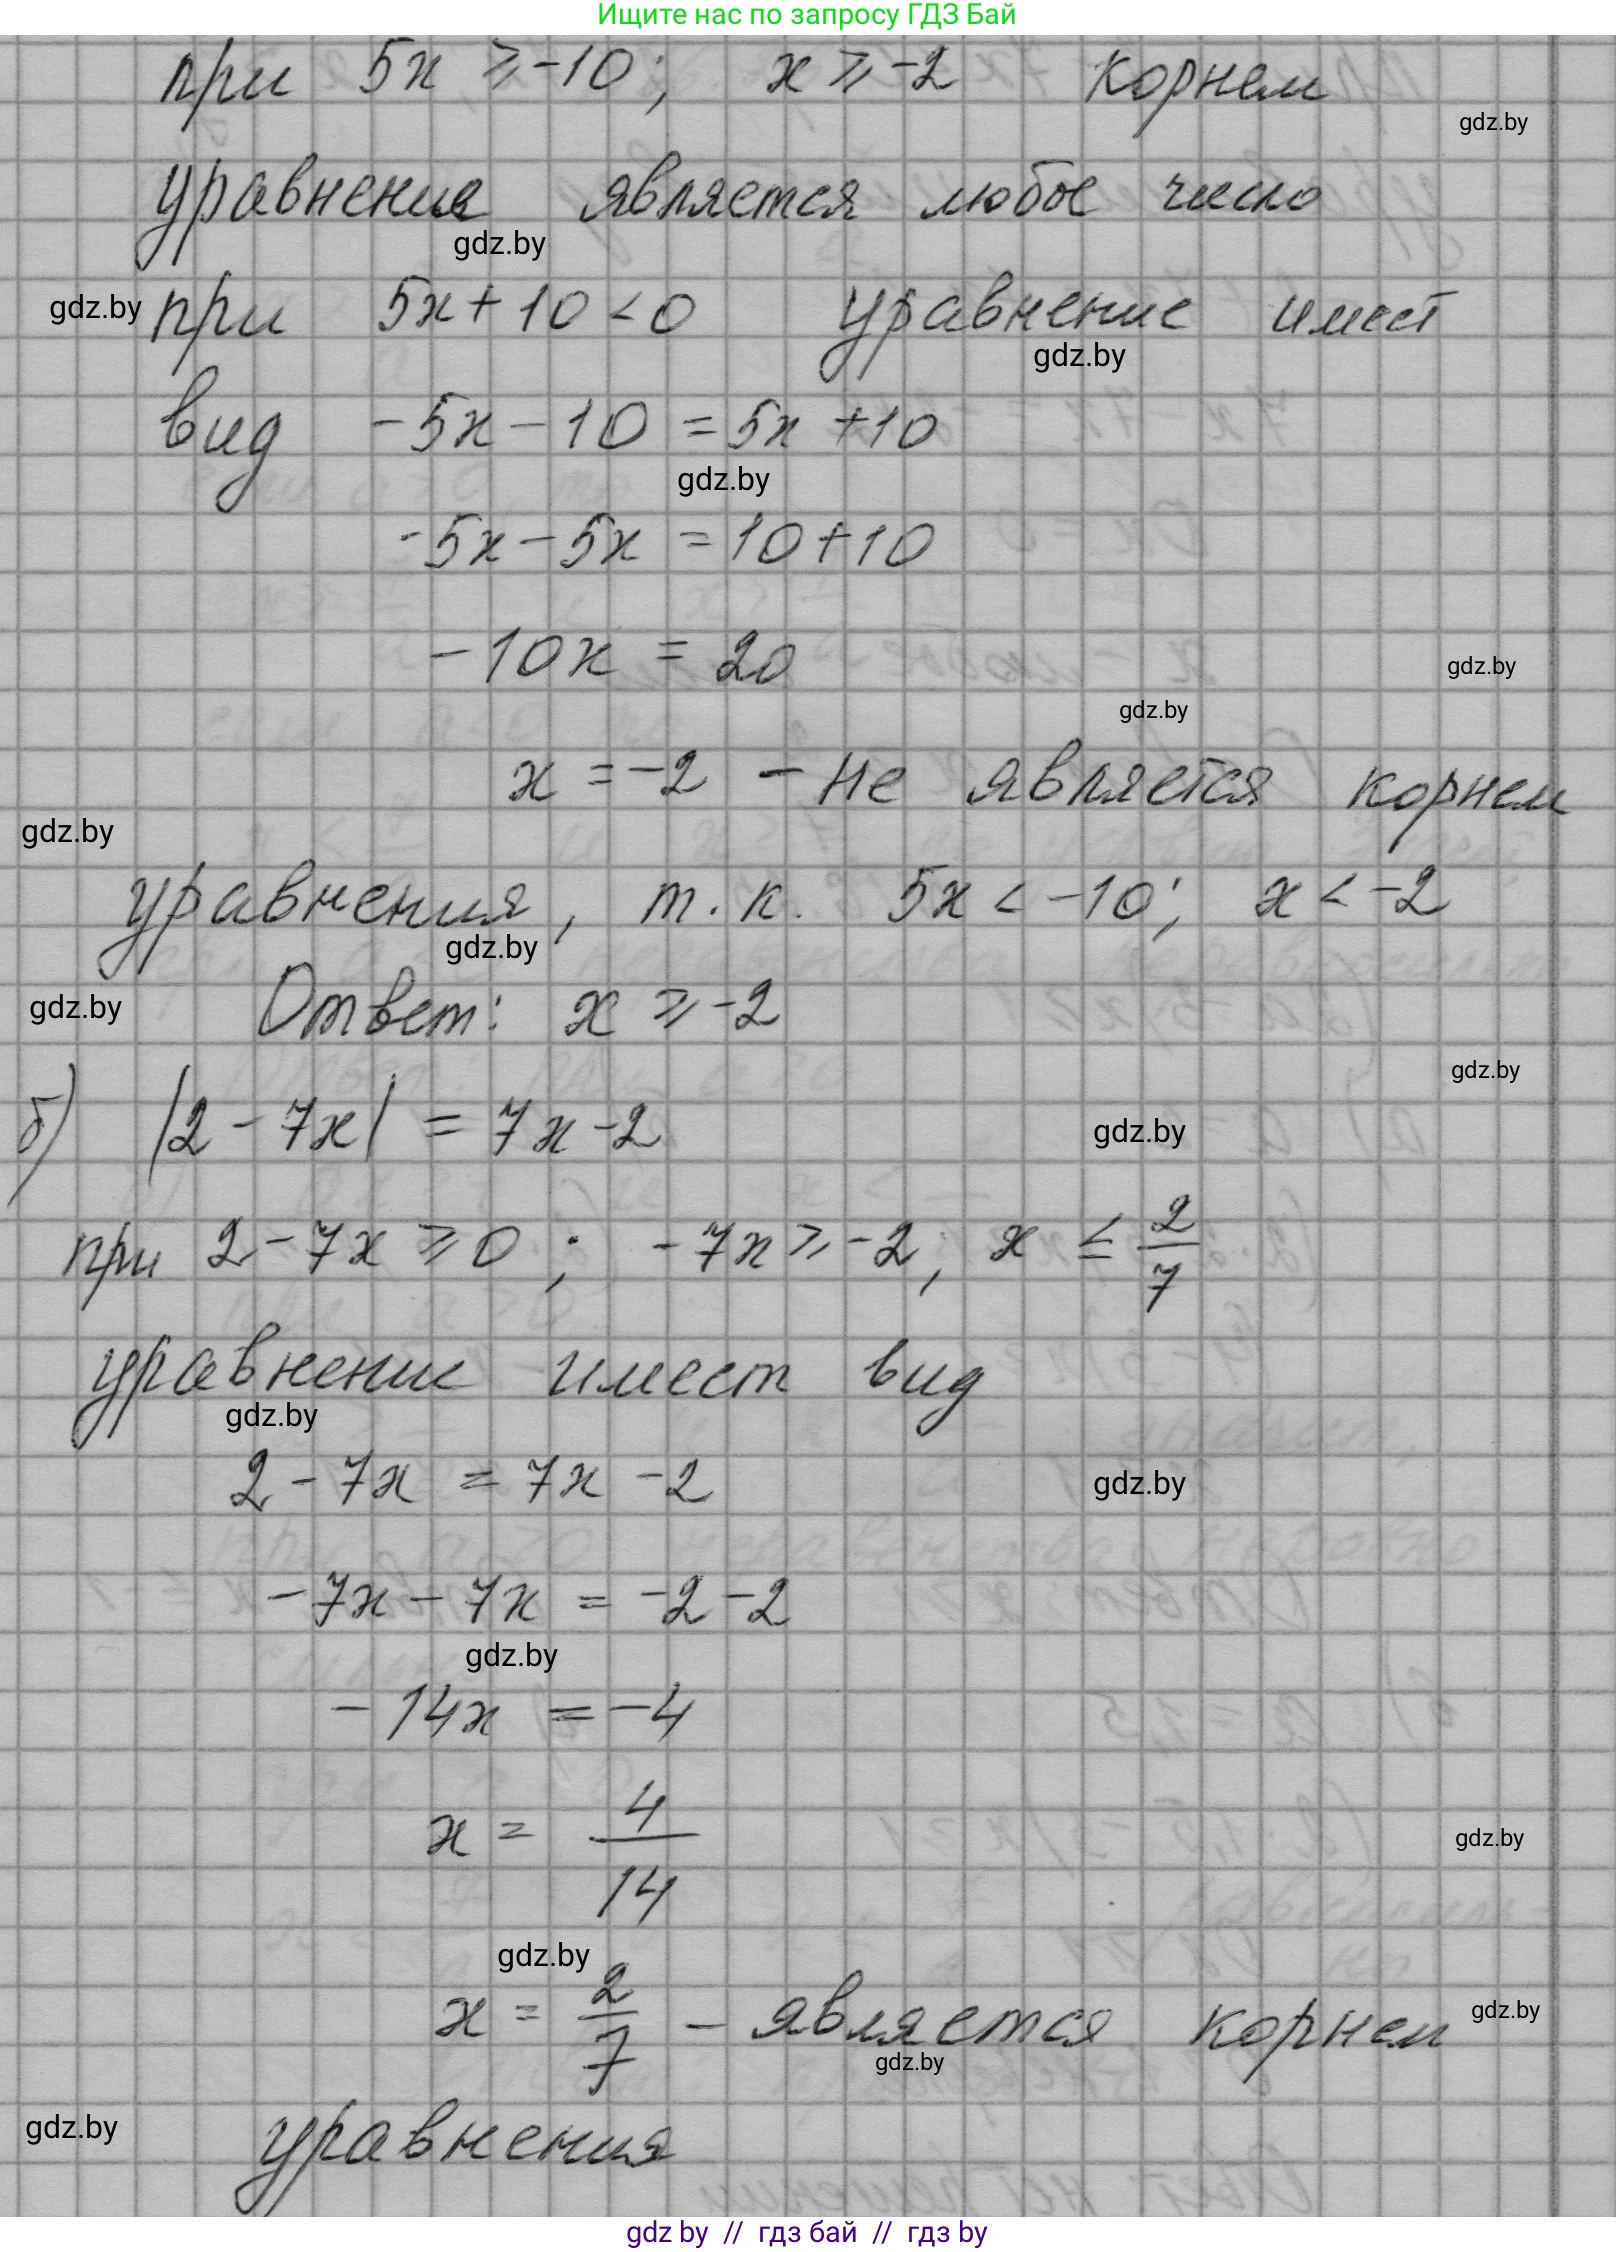 Ищите нас по запросу ГДЗ Бай
при 5x ⩾ -10; x ⩾ -2 корнем
gdz.by
уравнение является любое число
gdz.by
gdz.by при 5x + 10 < 0 уравнение имеет
gdz.by
вид -5x - 10 = 5x + 10
gdz.by
-5x - 5x = 10 + 10
-10x = 20
gdz.by
gdz.by
x = -2 - не является корнем
gdz.by
уравнения, т.к. 5x < -10; x < -2
gdz.by
gdz.by Ответ: x ⩾ -2
gdz.by
б) |2 - 7x| = 7x - 2
gdz.by
при 2 - 7x ⩾ 0; -7x ⩾ -2; x ≤ 2/7
уравнение имеет вид
gdz.by
2 - 7x = 7x - 2
gdz.by
-7x - 7x = -2 - 2
gdz.by
-14x = -4
x = 4/14
gdz.by
gdz.by
x = 2/7 - является корнем
gdz.by
gdz.by
gdz.by
уравнения
gdz by // гдз бай // гдз by